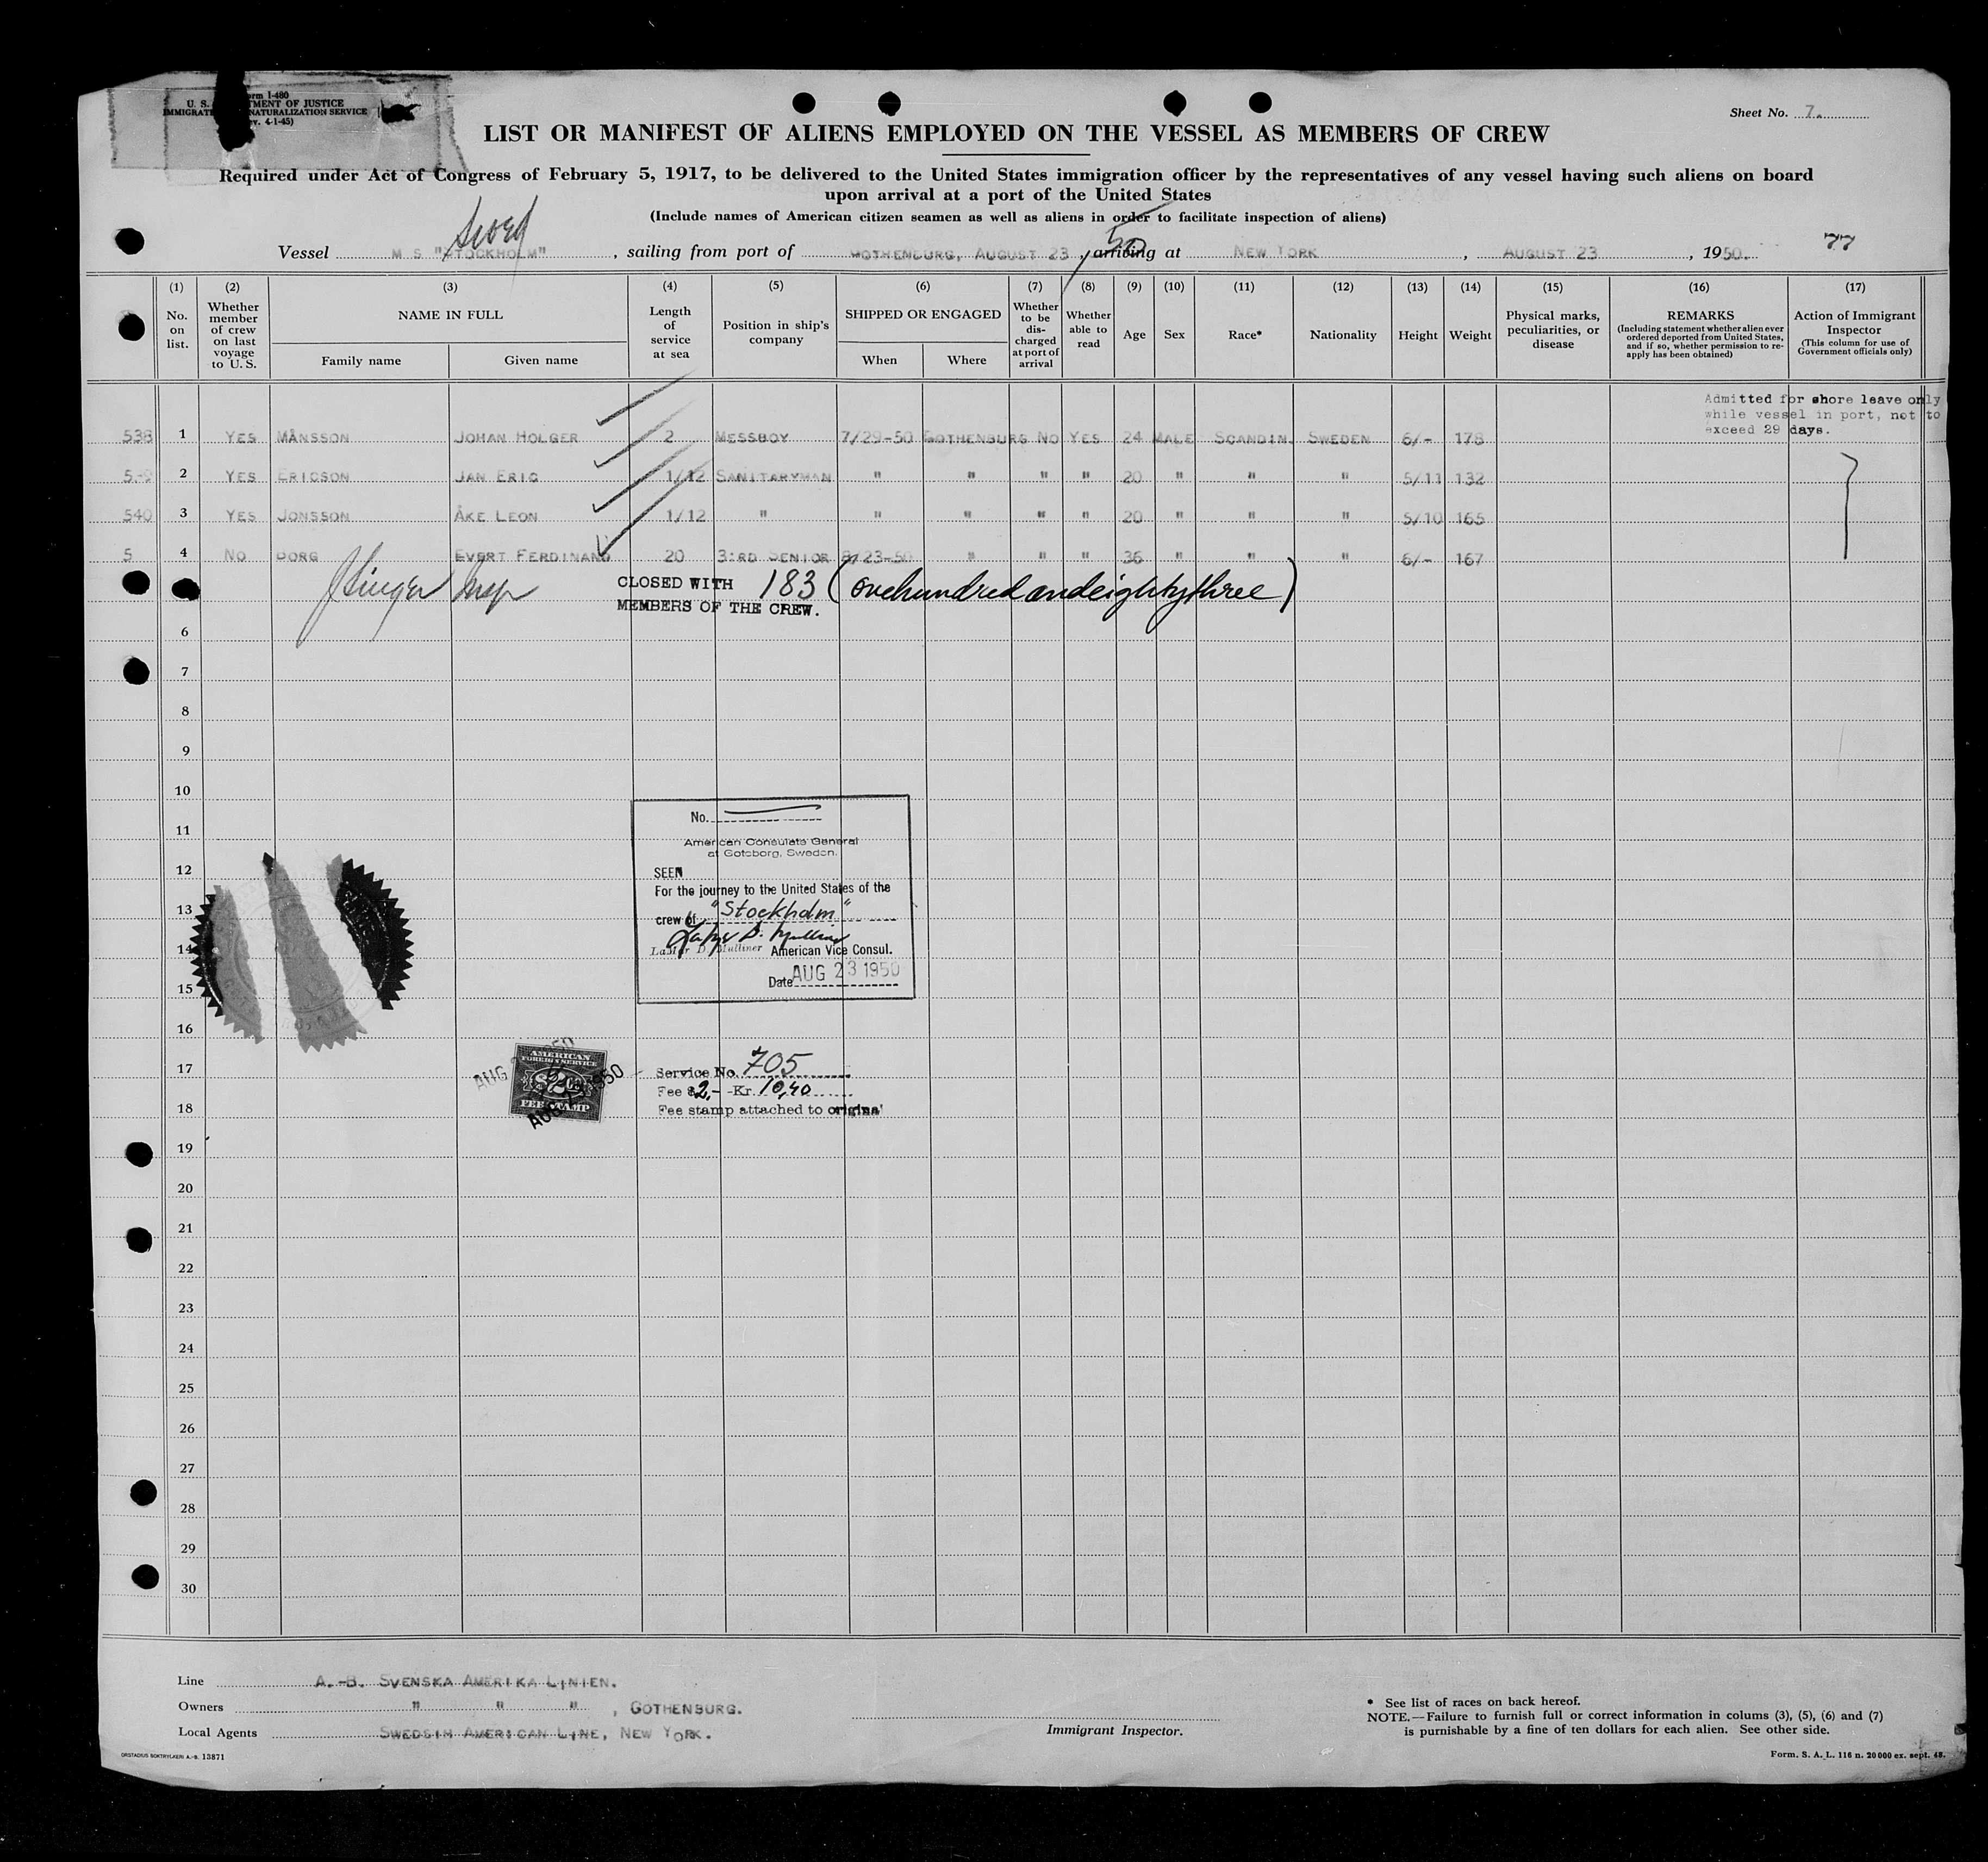 Form I-480
U. S. DEPARTMENT OF JUSTICE
IMMIGRATION NATURALIZATION SERVICE
4-1-45)
Sheet No. 7.
LIST OR MANIFEST OF ALIENS EMPLOYED ON THE VESSEL AS MEMBERS OF CREW
Required under Act of Congress of February 5, 1917, to be delivered to the United States immigration officer by the representatives of any vessel having such aliens on board
upon arrival at a port of the United States
(Include names of American citizen seamen as well as aliens in order to facilitate inspection of aliens)
Swed
50
77
Vessel M S "STOCKHOLM", sailing from port of GOTHENBURG, AUGUST 23, arriving at NEW YORK, AUGUST 23, 1950.
(1) (2) (3) (4) (5) (6) (7) (8) (9) (10) (11) (12) (13) (14) (15) (16) (17)
No. on list. Whether member of crew on last voyage to U. S. NAME IN FULL Family name Given name Length of service at sea Position in ship's company SHIPPED OR ENGAGED When Where Whether to be discharged at port of arrival Whether able to read Age Sex Race* Nationality Height Weight Physical marks, peculiarities, or disease REMARKS (Including statement whether alien ever ordered deported from United States, and if so, whether permission to re-apply has been obtained) Action of Immigrant Inspector (This column for use of Government officials only)
Admitted for shore leave only
while vessel in port, not to
exceed 29 days.
538 1 YES MÅNSSON JOHAN HOLGER 2 MESSBOY 7/29-50 GOTHENBURG NO YES 24 MALE SCANDIN. SWEDEN 6/- 178
2 YES ERICSON JAN ERIC 1/12 SANITARYMAN " " " " 20 " " " 5/11 132
540 3 YES JONSSON ÅKE LEON 1/12 " " " " " 20 " " " 5/10 165
5 4 NO BORG EVERT FERDINAND 20 3:RD SENIOR 8/23-50 " " " 36 " " " 6/- 167
Singer Insp
CLOSED WITH 183 (onehundredandeightythree)
MEMBERS OF THE CREW.
6
7
8
9
10
11
12
13
14
15
16
17
18
19
20
21
22
23
24
25
26
27
28
29
30
No.
American Consulate General
at Goteborg, Sweden.
SEEN
For the journey to the United States of the
crew of "Stockholm"
LaMar D. Mulliner American Vice Consul.
Date AUG 23 1950
AMERICAN
FOREIGN SERVICE
$2
FEE STAMP
AUG 23 1950
Service No. 705
Fee $2,- -Kr. 10,40
Fee stamp attached to original
Line A.-B. SVENSKA AMERIKA LINIEN.
Owners " " ", GOTHENBURG.
Local Agents SWEDSIH AMERICAN LINE, NEW YORK.
Immigrant Inspector.
* See list of races on back hereof.
NOTE.—Failure to furnish full or correct information in colums (3), (5), (6) and (7)
is purnishable by a fine of ten dollars for each alien. See other side.
ORSTADIUS BOKTRYCKERI A.-B. 13871
Form. S. A. L. 116 n. 20 000 ex. sept. 48.